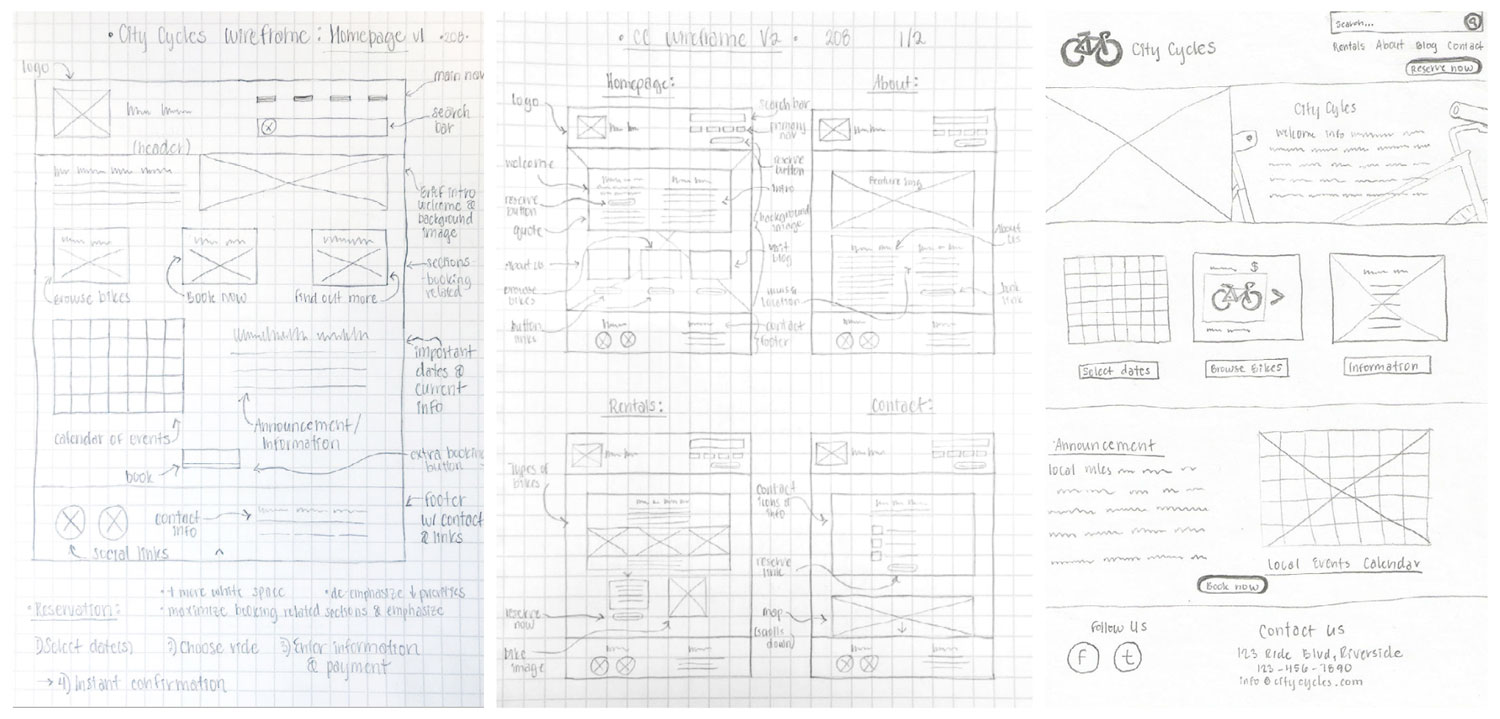 • City Cycles Wireframe: Homepage v1 •208•
logo
main nav
search bar
(header)
Brief intro
welcome &
background
image
sections
-booking
related
Browse bikes
Book now
find out more
important
dates &
current
info
calendar of events
Announcement/
Information
extra booking
button
book
footer
w/ contact
& links
contact
info
social links
• + more white space
• de-emphasize ↓ priorities
• Reservation:
• maximize booking related sections & emphasize
1) Select date(s)
2) Choose ride
3) Enter information
& payment
→ 4) Instant confirmation
• CC Wireframe V2 •
208
1/2
Homepage:
About:
logo
search bar
primary
nav
button
welcome
intro
reserve
button
quote
background
image
visit
blog
About
us
About us
browse
bikes
location
link
button
links
contact
footer
Rentals:
Contact:
Types of
bikes
contact
icons & info
reserve
link
reserve
now
map
(scrolls
down)
bike
image
Search...
City Cycles
Rentals About Blog Contact
Reserve now
City Cyles
Welcome info
$
Select dates
Browse Bikes
Information
Announcement
local rules
Local Events Calendar
Book now
Follow Us
f
t
Contact us
123 Ride Blvd, Riverside
123-456-7890
info@citycycles.com